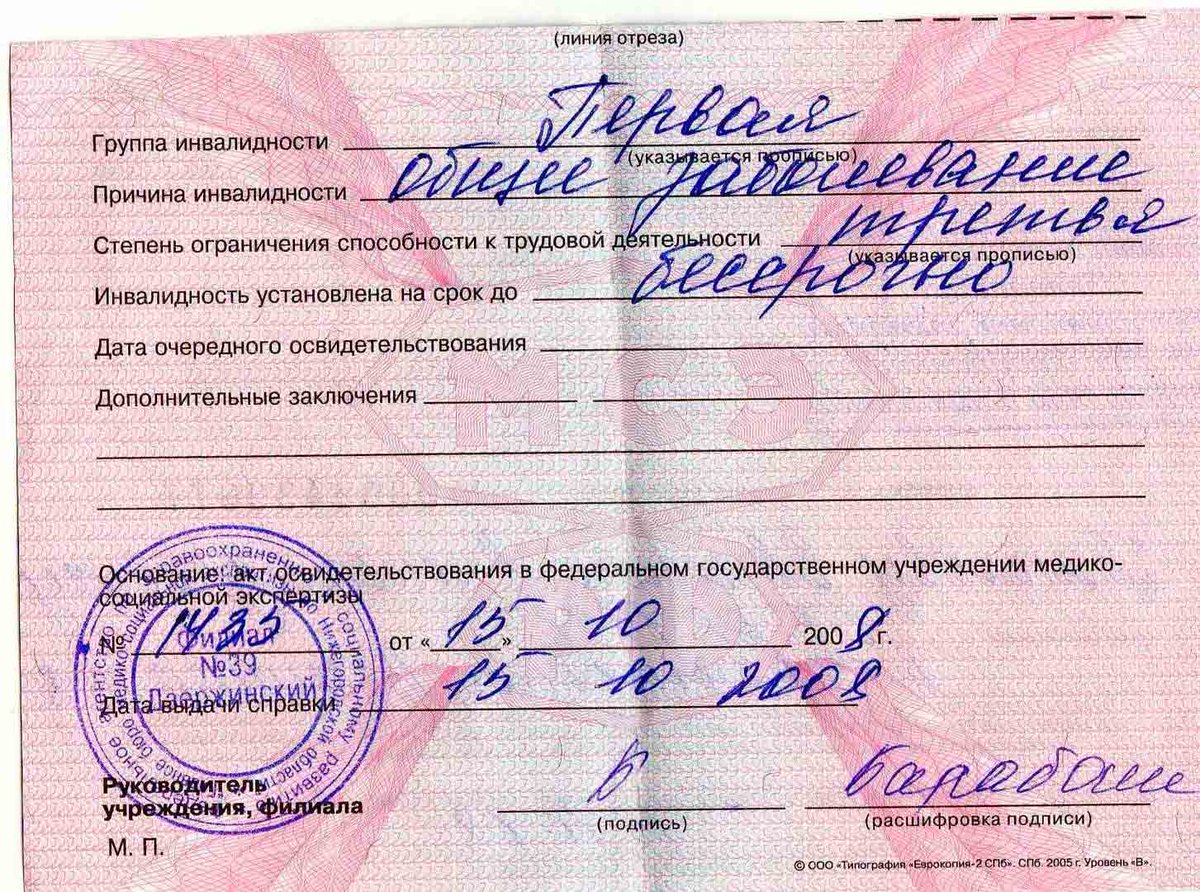 (линия отреза)
Группа инвалидности Первая
(указывается прописью)
Причина инвалидности общее заболевание
Степень ограничения способности к трудовой деятельности третья
(указывается прописью)
Инвалидность установлена на срок до бессрочно
Дата очередного освидетельствования
Дополнительные заключения
МСЭ
Основание: акт освидетельствования в федеральном государственном учреждении медико-
социальной экспертизы
№ 1433 от «15» 10 2008 г.
филиал
№39
Дзержинский
Дата выдачи справки 15 10 2008
Руководитель
учреждения, филиала
(подпись)
(расшифровка подписи)
М. П.
© ООО «Типография «Еврокопия-2 СПб». СПб. 2005 г. Уровень «В».